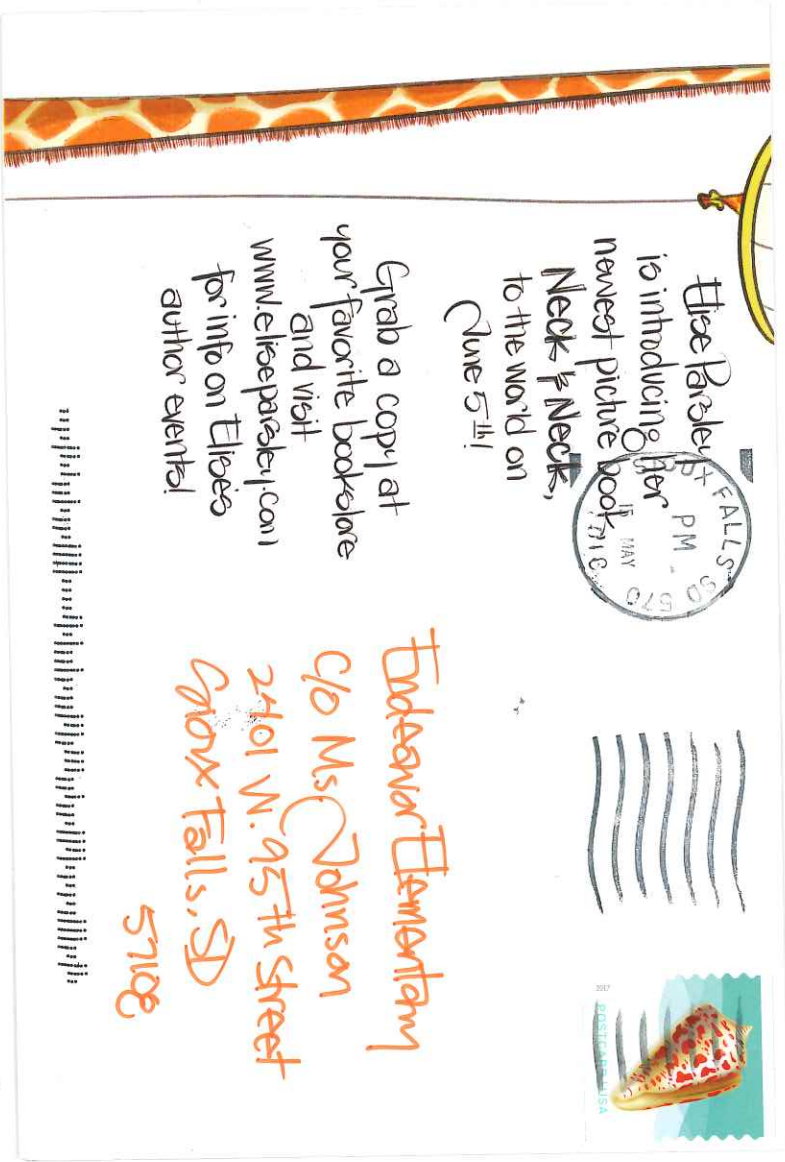 Elise Parsley
is introducing her
newest picture book,
Neck & Neck,
to the world on
June 5th!
Grab a copy at
your favorite bookstore
and visit
www.eliseparsley.com
for info on Elise's
author events!
FALLS SD 570
PM
15 MAY
Endeavor Elementary
C/o Ms. Johnson
2401 W. 95th Street
Sioux Falls, SD
57108
2017
POSTCARD USA